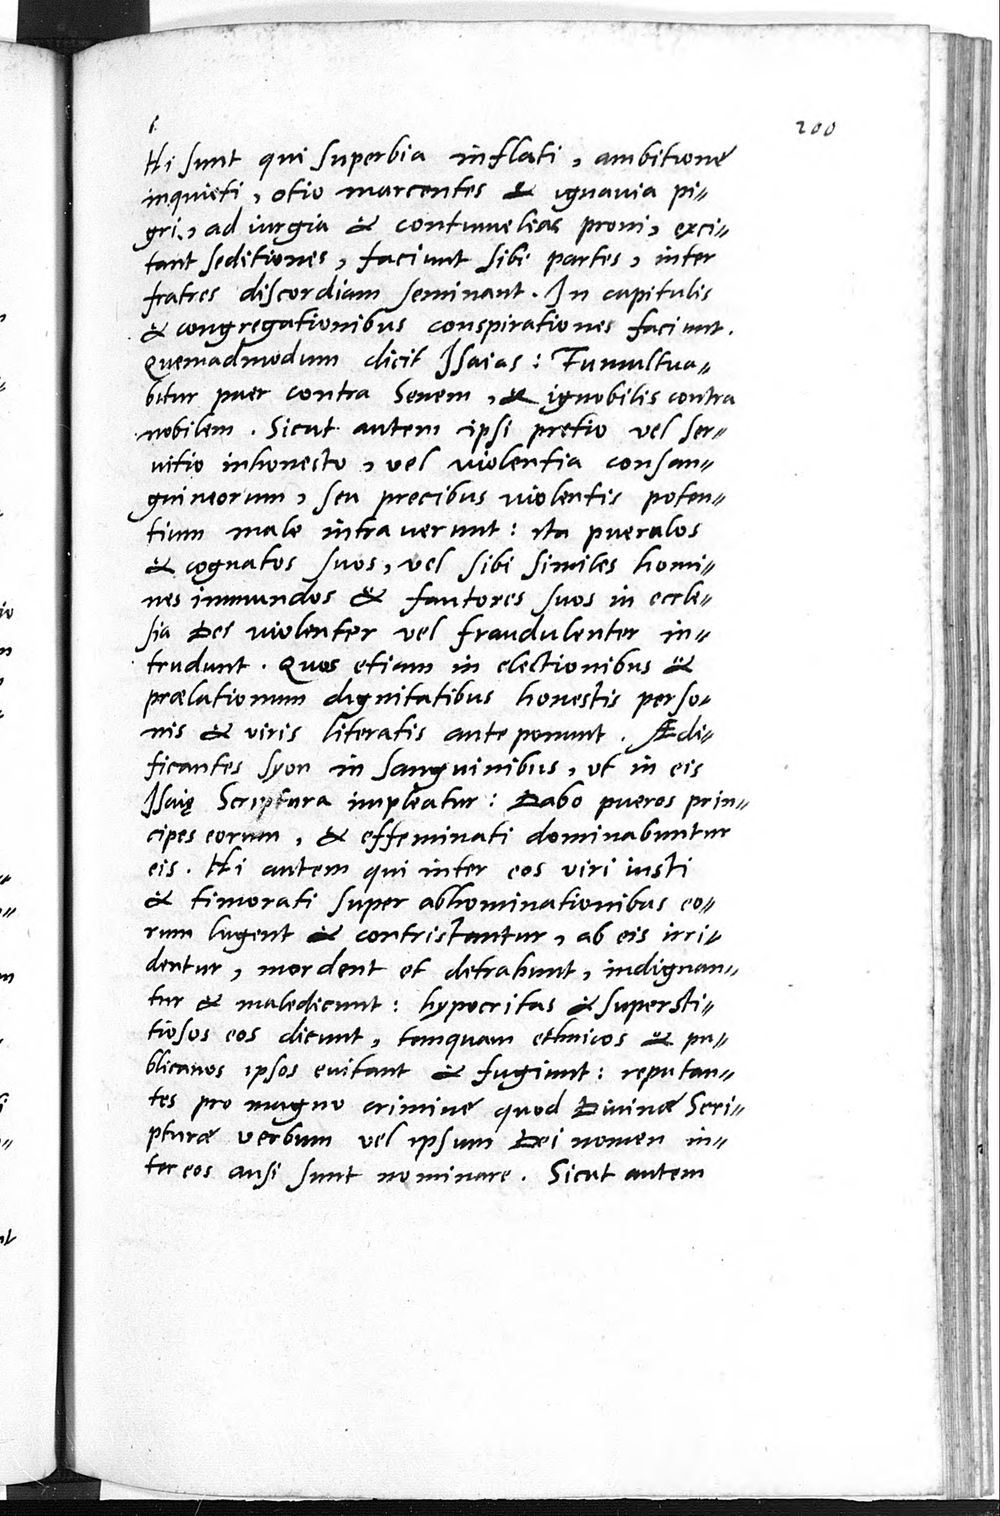 200
Hi sunt qui superbia inflati, ambitione
inquieti, otio marcentes & ignauia pi⸗
gri, ad iurgia & contumelias proni, exci⸗
tant seditiones, faciunt sibi partes, inter
fratres discordiam seminant. In capitulis
& congregationibus conspirationes faciunt.
Quemadmodum dicit Isaias: Tumultua⸗
bitur puer contra Senem, & ignobilis contra
nobilem. Sicut autem ipsi pretio vel ser⸗
uitio inhonesto, vel violentia consan⸗
guineorum, seu precibus violentis poten⸗
tium male intrauerunt: ita puerulos
& cognatos suos, vel sibi similes homi⸗
nes immundos & fautores suos in eccle⸗
sia Dei violenter vel fraudulenter in⸗
trudunt. Quos etiam in electionibus &
prælationum dignitatibus honestis perso⸗
nis & viris literatis anteponunt. Ædi⸗
ficantes Syon in Sanguinibus, vt in eis
Isaię Scriptura impleatur: Dabo pueros prin⸗
cipes eorum, & effeminati dominabuntur
eis. Hi autem qui inter eos viri iusti
& timorati super abhominationibus eo⸗
rum lugent & contristantur, ab eis irri⸗
dentur, mordent et detrahunt, indignan⸗
tur & maledicunt: hypocritas & supersti⸗
tiosos eos dicunt, tanquam ethnicos & pu⸗
blicanos ipsos euitant & fugiunt: reputan⸗
tes pro magno crimine quod Diuinæ Scri⸗
pturæ verbum vel ipsum Dei nomen in⸗
ter eos ausi sunt nominare. Sicut autem